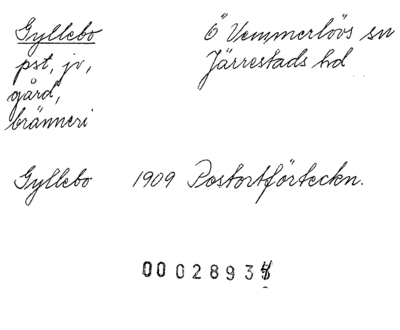 Gyllebo Ö Vemmerlövs sn
pst, jv, Järrestads hd
gård,
bränneri
Gyllebo 1909 Postortförteckn.
0002893